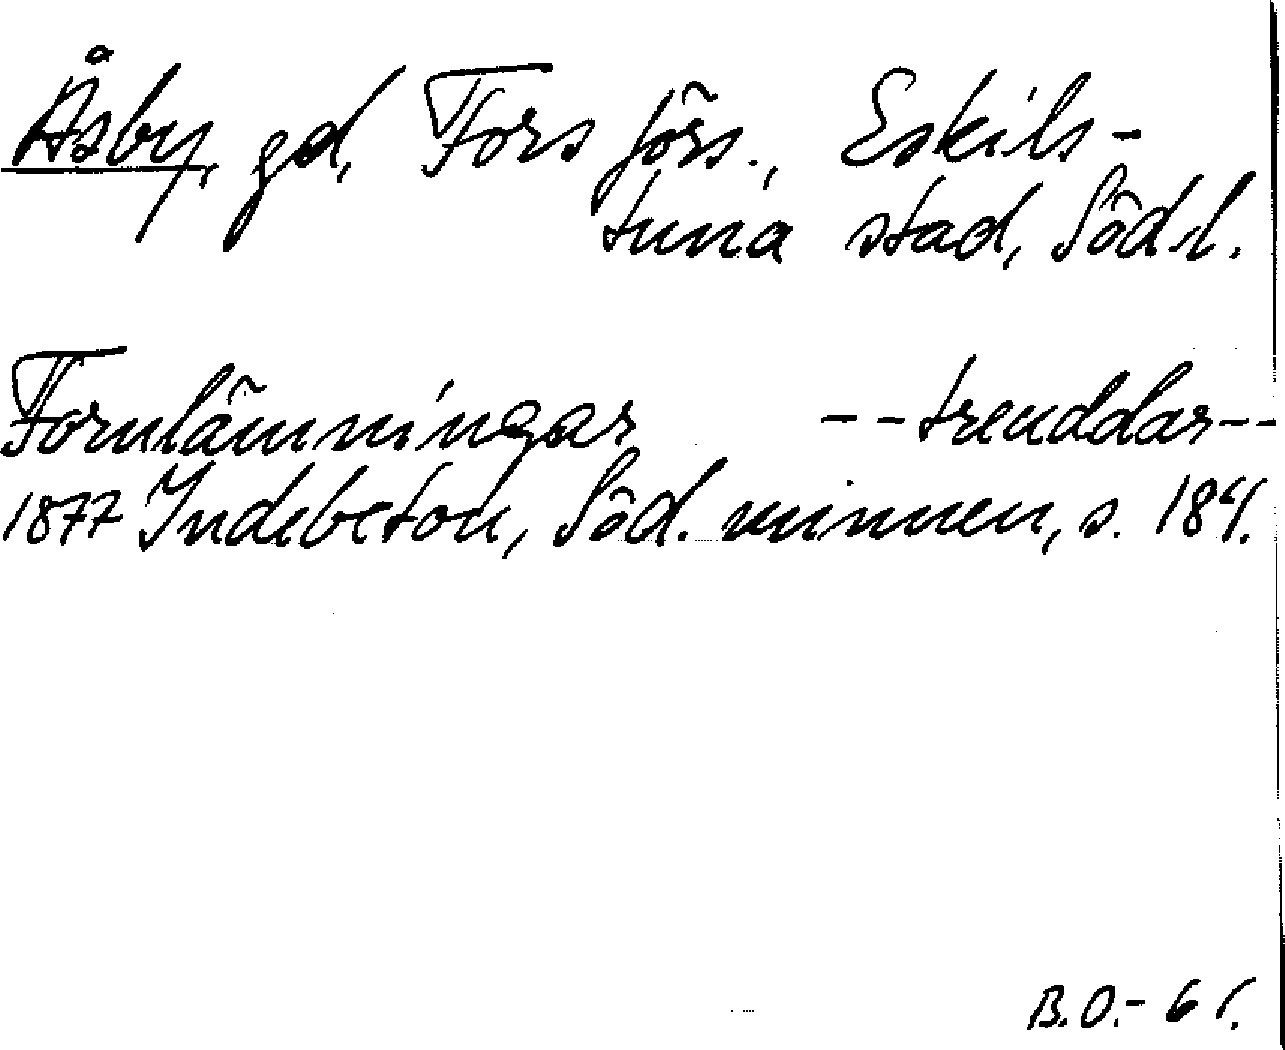 Åsby, gd, Fors förs., Eskils-
tuna stad, Södl.
Fornlämningar --treuddar--
1877 Indebetou, Söd. minnen, s. 184.
B.O.- 61.